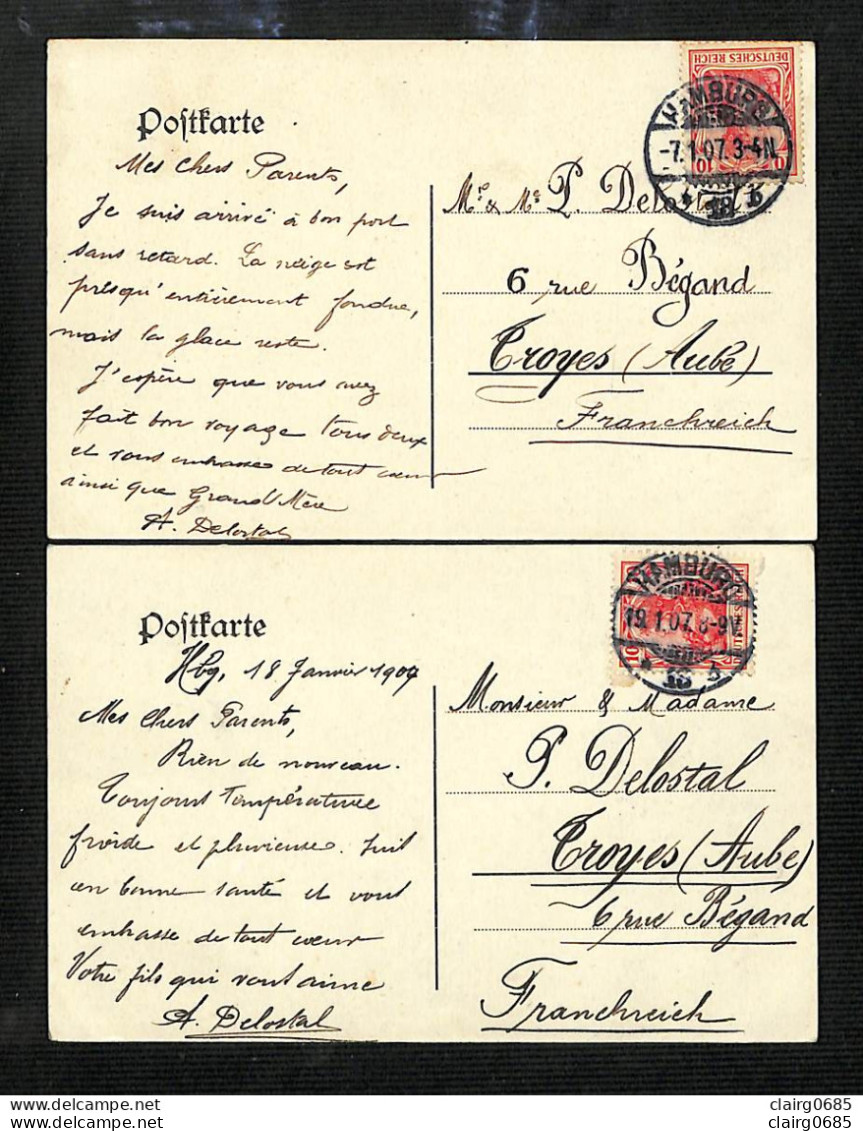 Postkarte
Mes Chers Parents,
Je suis arrivé à bon port
sans retard. La neige est
presqu'entièrement fondue,
mais la glace reste.
J'espère que vous avez
fait bon voyage tous deux
et vous embrasse de tout cœur
ainsi que Grand'Mère
A. Delostal
DEUTSCHES REICH
10 10
HAMBURG
-7.1.07.3-4N.
* 18 b
Mr & Me P. Delostal
6 rue Bégand
Troyes (Aube)
Franchreich
Postkarte
Hbg, 18 Janvier 1907
Mes Chers Parents,
Rien de nouveau.
Toujours température
froide et pluvieuse. Suis
en bonne santé et vous
embrasse de tout cœur
Votre fils qui vous aime
A. Delostal
10
HAMBURG
19.1.07.8-9V.
Monsieur & Madame
P. Delostal
Troyes (Aube)
6 rue Bégand
Franchreich
www.delcampe.net
www.delcampe.net
clairg0685
clairg0685